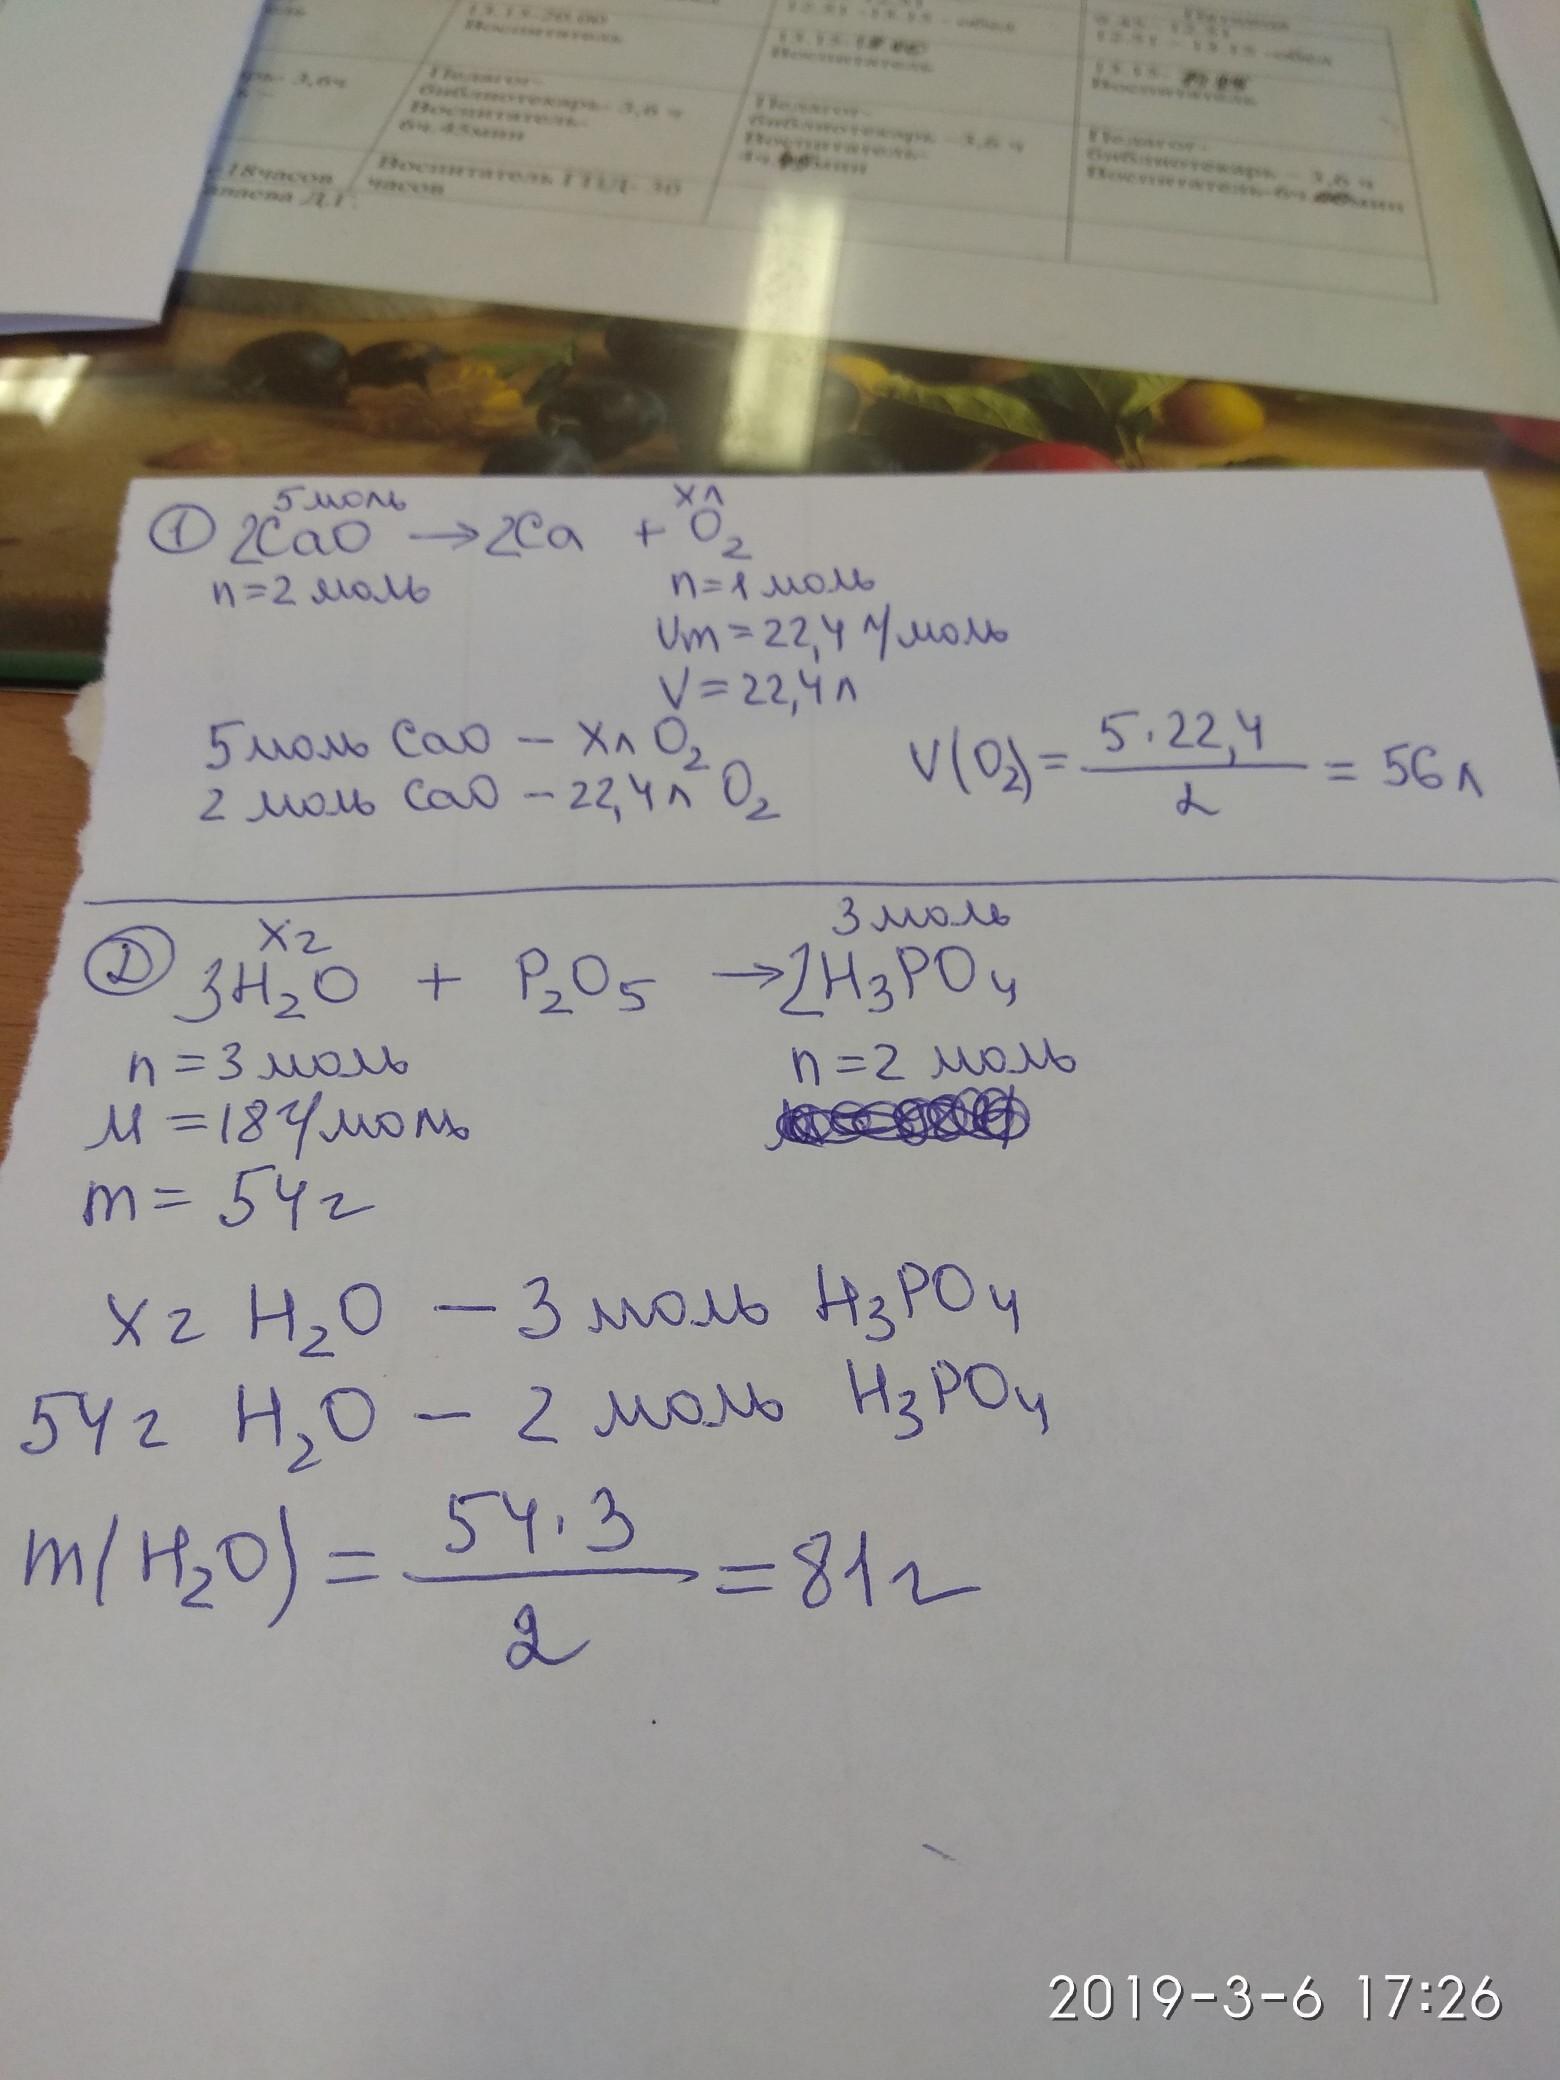 13.15-20.00
Воспитатель
12.51 -13.15 - обед
13.15-
Воспитатель
Пятница
12.51 - 13.15 -обед
13.15-
Воспитатель
3,6ч
Педагог-
библиотекарь- 3,6 ч
Воспитатель-
6ч.45мин
Педагог-
библиотекарь -3,6 ч
Воспитатель-
4ч. мин
Педагог-
библиотекарь - 3,6 ч
Воспитатель-6ч. мин
18часов
Д.Г.
Воспитатель ГПД- 30
часов
5моль xл
① 2CaO → 2Ca + O₂
n=2 моль n=1 моль
Vm = 22,4 л/моль
V = 22,4 л
5 моль CaO – xл O₂
2 моль CaO – 22,4 л O₂
V(O₂) = 5·22,4 / 2 = 56 л
xг 3 моль
② 3H₂O + P₂O₅ → 2H₃PO₄
n = 3 моль n = 2 моль
M = 18 г/моль
m = 54 г
xг H₂O – 3 моль H₃PO₄
54 г H₂O – 2 моль H₃PO₄
m(H₂O) = 54·3 / 2 = 81 г
2019-3-6 17:26